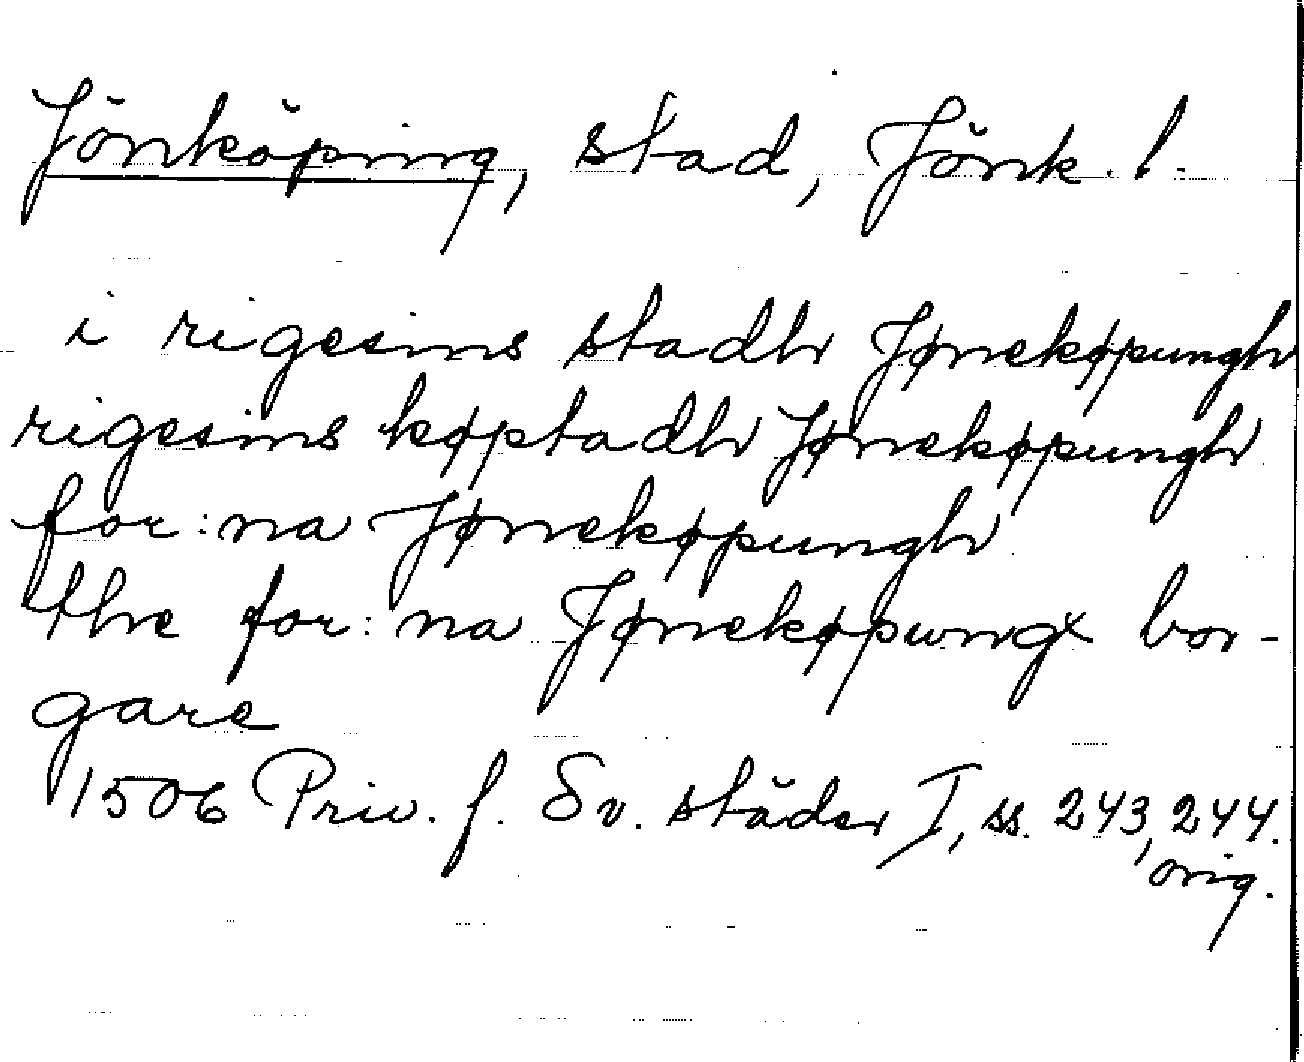 Jönköping, stad, Jönk. l.
i rigesins stadh Jønekøpungh
rigesins køpstadh Jønekøpungh
for:na Jønekøpungh
the for:na Jønekøpungx bor-
gare
1506 Priv. f. Sv. städer I, ss. 243, 244.
orig.